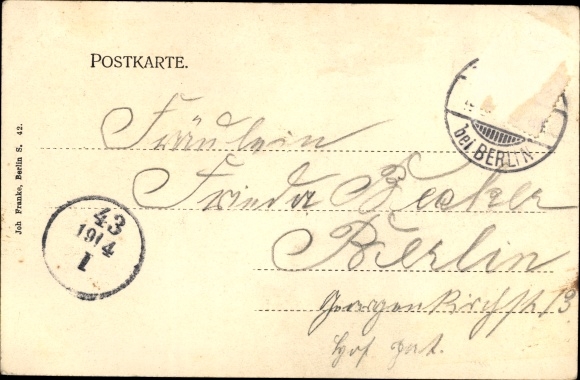 POSTKARTE.
bei BERLIN
Fräulein
Frieda Becker
Berlin
Georgenkirchstr 13
Hof part.
43
1914
I
Joh Franke, Berlin S. 42.